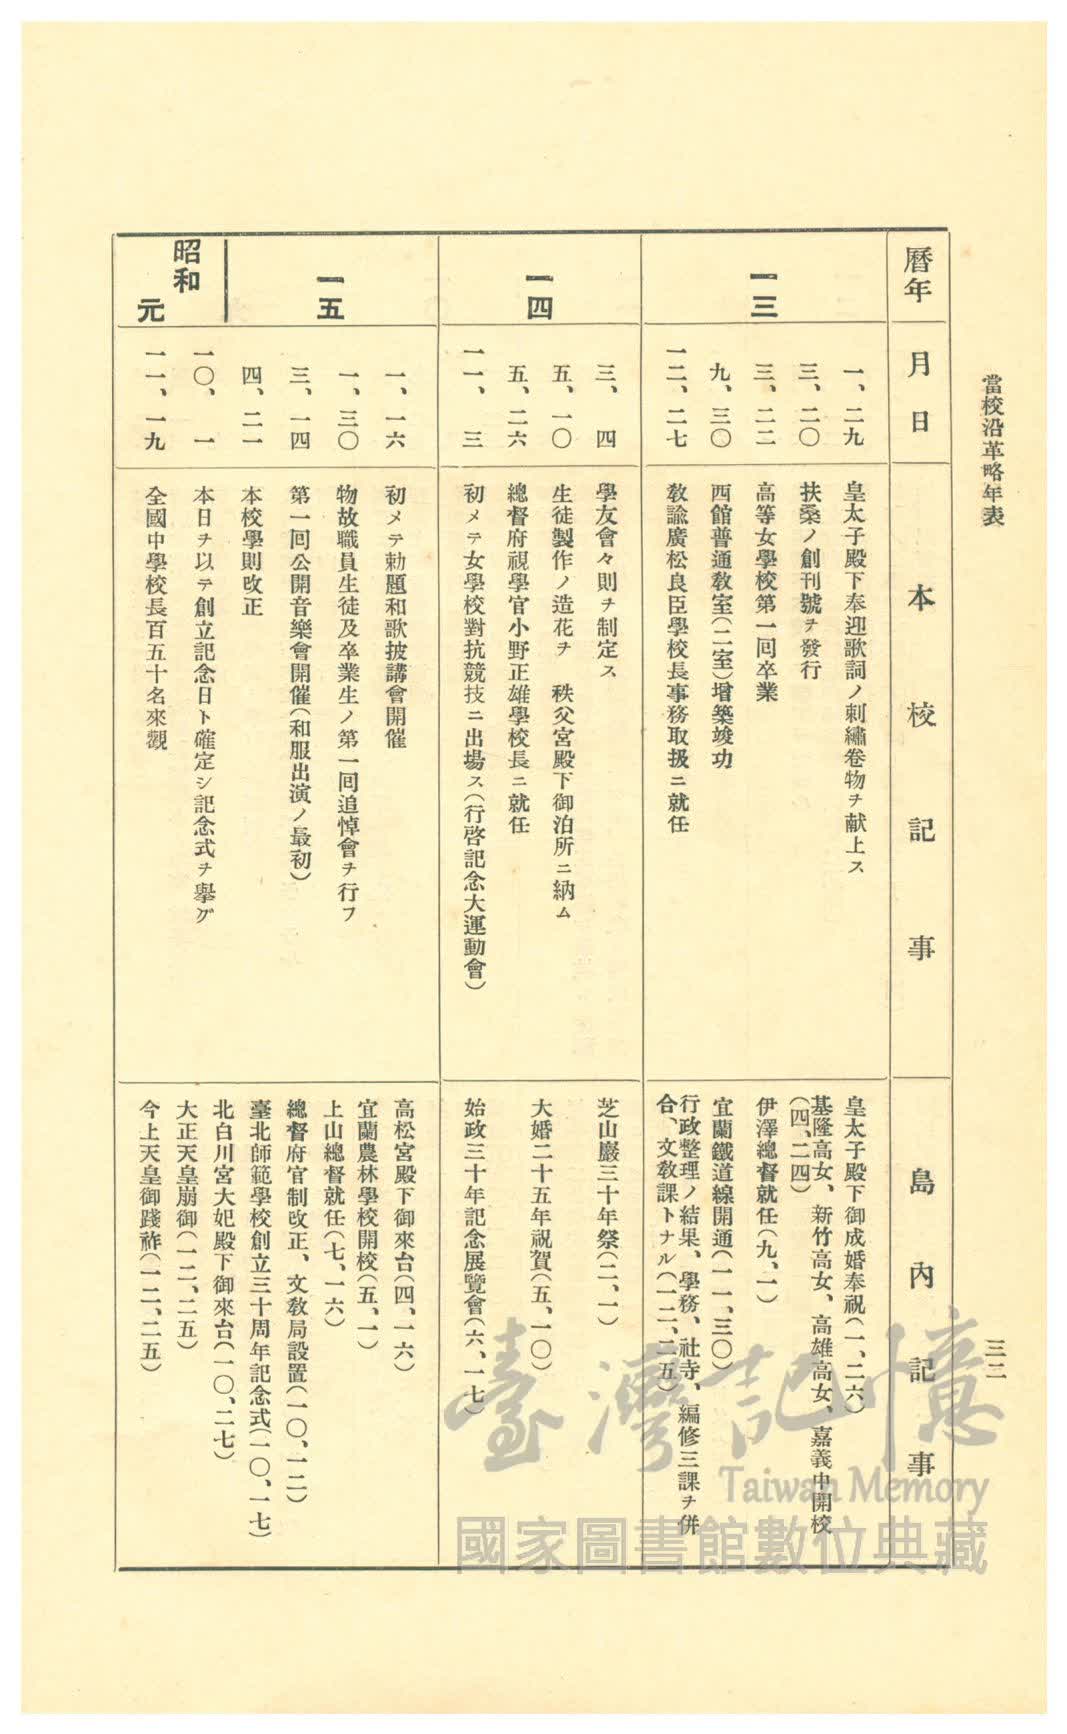 當校沿革略年表
三二
曆年
月日
本校記事
島內記事
一三
一、二九
皇太子殿下奉迎歌詞ノ刺繡卷物ヲ献上ス
三、二〇
扶桑ノ創刊號ヲ發行
三、二二
高等女學校第一回卒業
九、三〇
西館普通教室(二室)增築竣功
一二、二七
教諭廣松良臣學校長事務取扱ニ就任
皇太子殿下御成婚奉祝(一、二六)
基隆高女、新竹高女、高雄高女、嘉義中開校
(四、二四)
伊澤總督就任(九、一)
宜蘭鐵道線開通(一一、三〇)
行政整理ノ結果、學務、社寺、編修三課ヲ併
合、文教課トナル(一二、二五)
一四
三、四
學友會々則ヲ制定ス
五、一〇
生徒製作ノ造花ヲ 秩父宮殿下御泊所ニ納ム
五、二六
總督府視學官小野正雄學校長ニ就任
一一、三
初メテ女學校對抗競技ニ出場ス(行啓記念大運動會)
芝山巖三十年祭(二、一)
大婚二十五年祝賀(五、一〇)
始政三十年記念展覽會(六、一七)
一五
一、一六
初メテ勅題和歌披講會開催
一、三〇
物故職員生徒及卒業生ノ第一回追悼會ヲ行フ
三、一四
第一回公開音樂會開催(和服出演ノ最初)
四、二一
本校學則改正
昭和
元
一〇、一
本日ヲ以テ創立記念日ト確定シ記念式ヲ擧グ
一一、一九
全國中學校長百五十名來觀
高松宮殿下御來台(四、一六)
宜蘭農林學校開校(五、一)
上山總督就任(七、一六)
總督府官制改正、文教局設置(一〇、一二)
臺北師範學校創立三十周年記念式(一〇、一七)
北白川宮大妃殿下御來台(一〇、二七)
大正天皇崩御(一二、二五)
今上天皇御踐祚(一二、二五)
臺灣記憶
Taiwan Memory
國家圖書館數位典藏